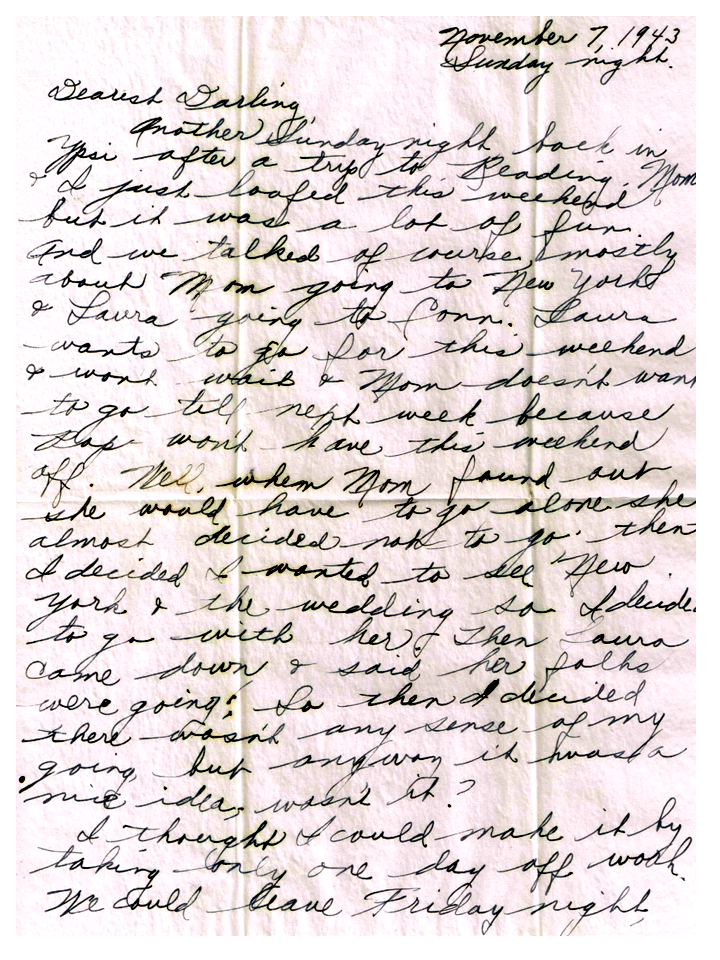 November 7, 1943
Sunday night.
Dearest Darling,
Another Sunday night, back in
Ypsi after a trip to Reading. Mom
& I just loafed this weekend
but it was a lot of fun.
And we talked of course, mostly
about Mom going to New York
& Laura going to Conn. Laura
wants to go for this weekend
& won't wait & Mom doesn't want
to go till next week because
won't have this weekend
off. Well, when Mom found out
she would have to go alone she
almost decided not to go. then
I decided I wanted to see New
York & the wedding so I decided
to go with her. Then Laura
came down & said her folks
were going! So then I decided
there wasn't any sense of my
going, but anyway it was a
nice idea, wasn't it?
I thought I could make it by
taking only one day off work.
We could leave Friday night,